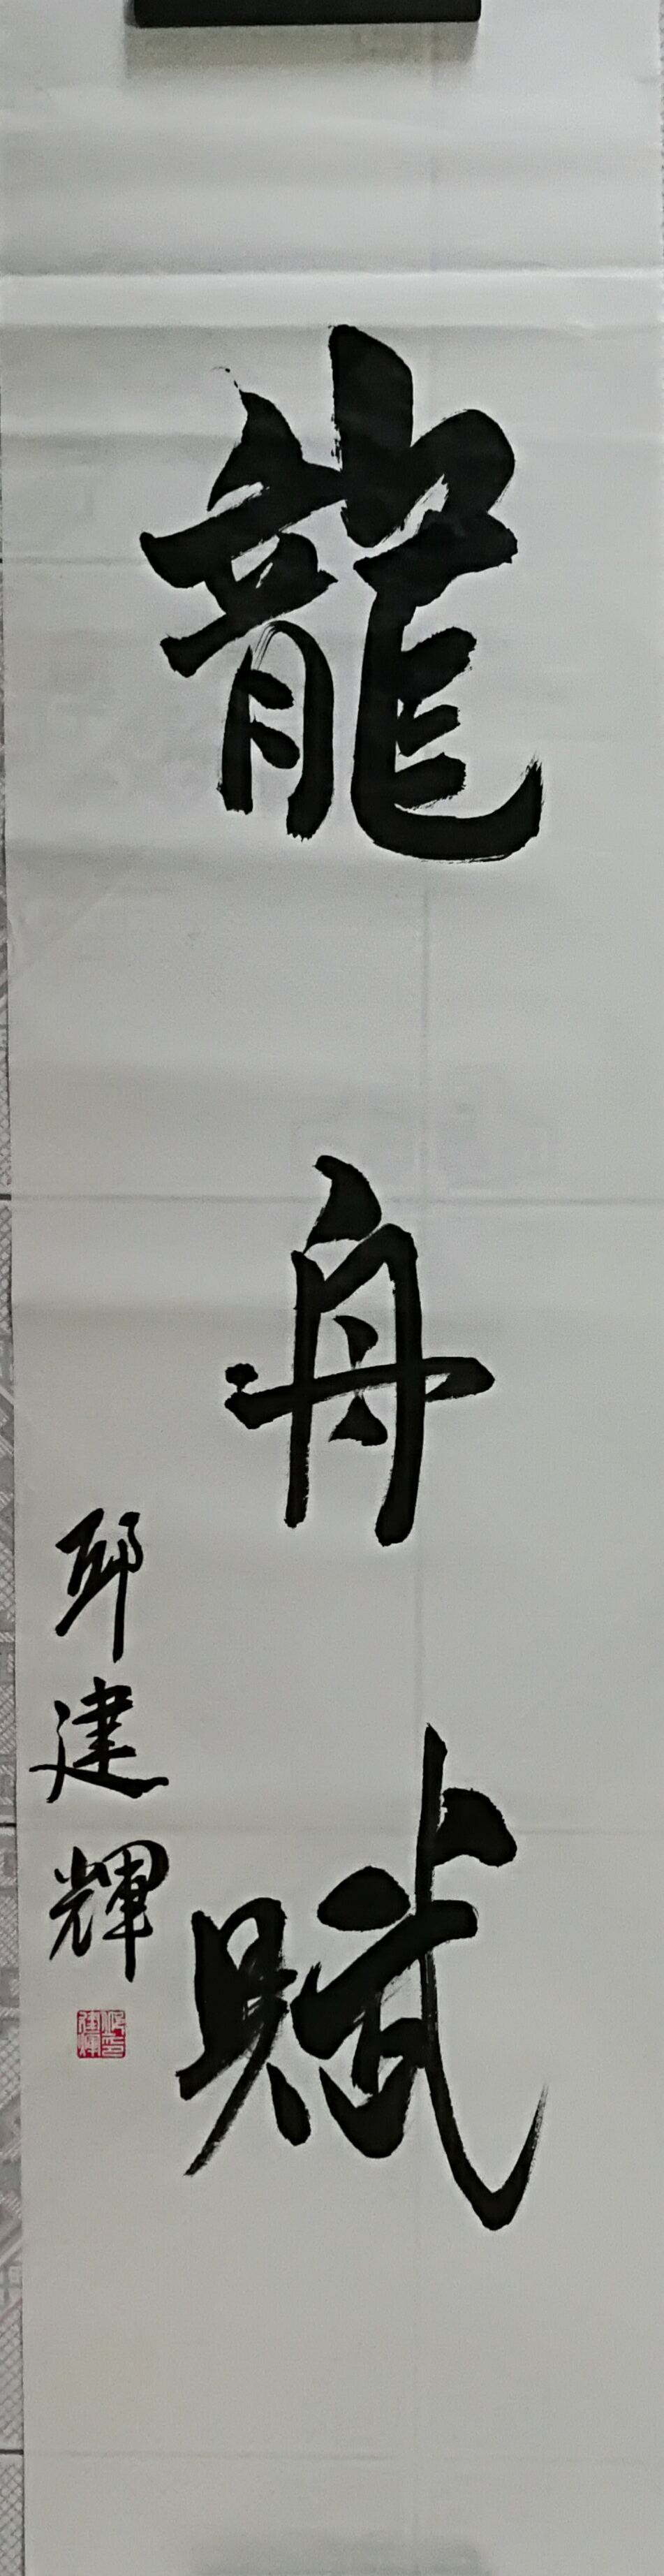 龍舟賦
邱建輝